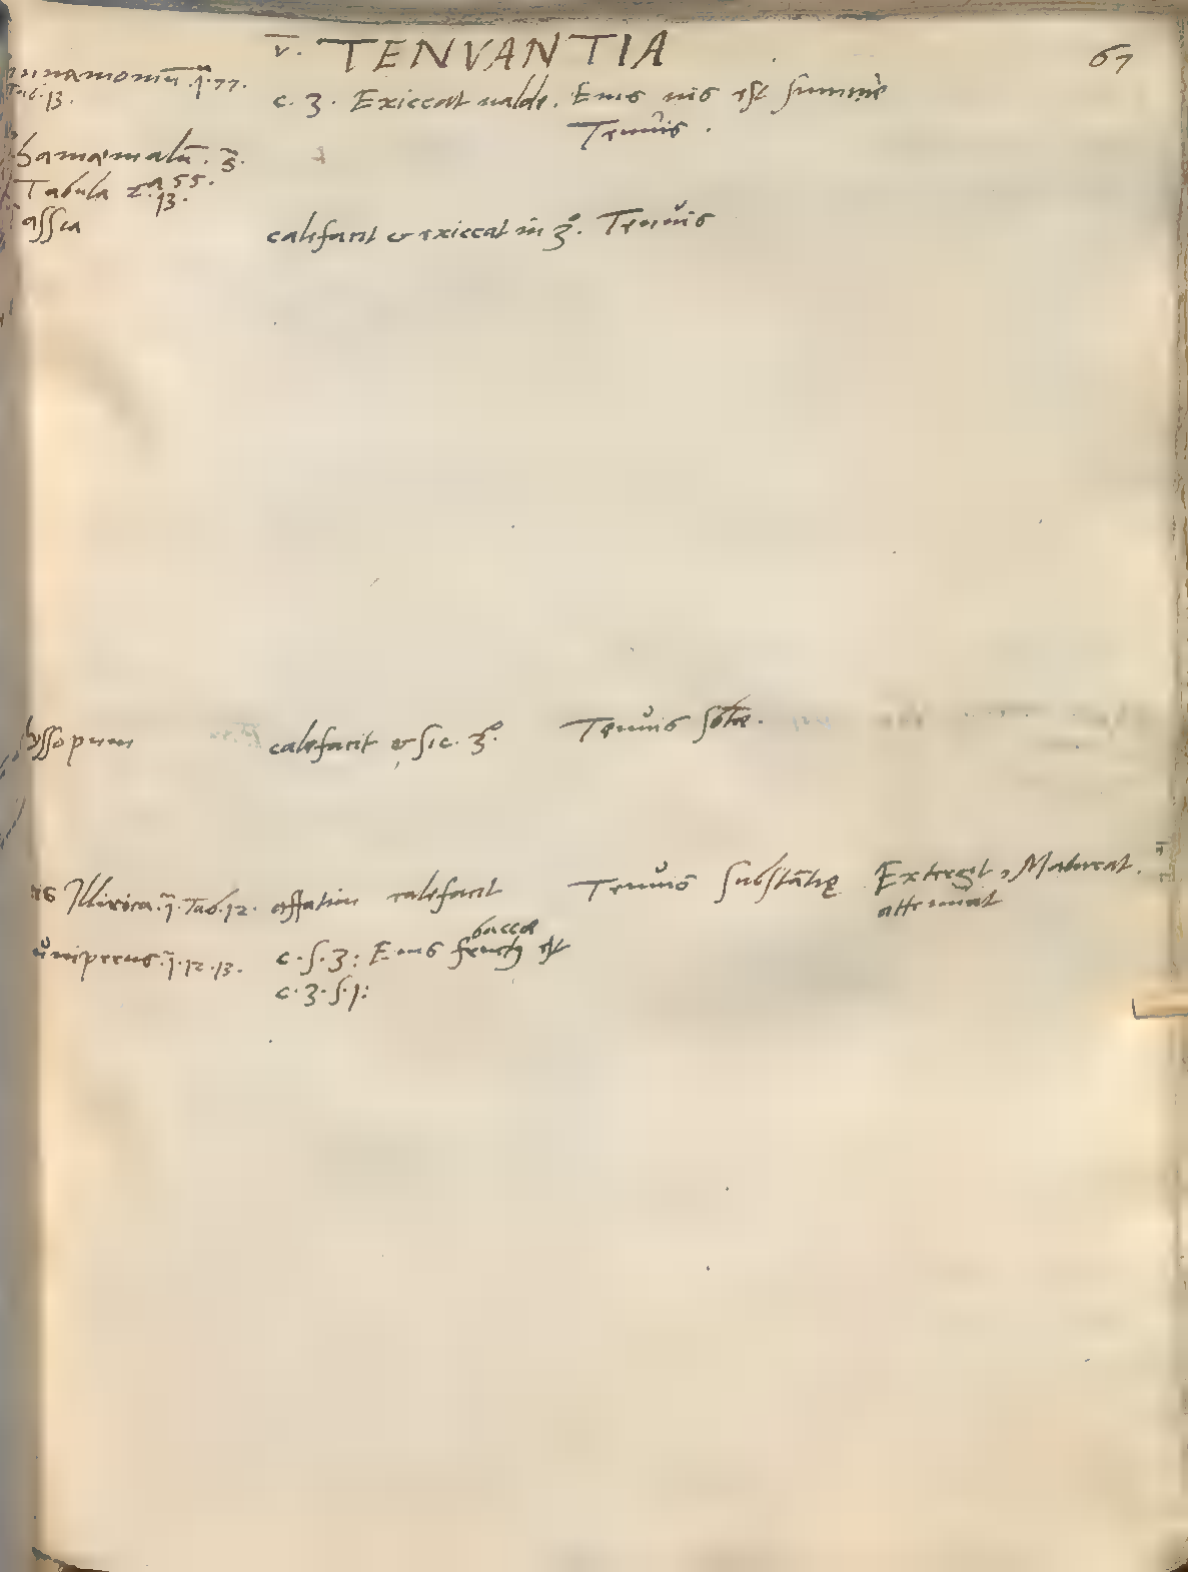 v. TENVANTIA 67
innamomū .1ª.77.
Tab.13.
c. 3. Exiccat ualde. Eius uis est summè
Tenuis.
hamæmalū. s̄.
Tabula 2ª 55.
13.
assia
califacit & exiccat in 3º. Tenuis
hyssopum calefacit & sic. 3º. Tenuis sbtæ.
ris Illirica .1ª. Tab. 12. affatim calefacit Tenuis substātię Exterget, Maturat.
attenuat
uniperus .1ª.12.13. c. s. 3: Eius fructꝰ est
baccæ
c. 3. s. 1: